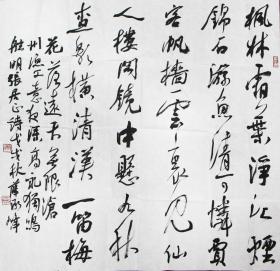 楓林霜葉淨江煙
錦石游魚清可憐賈
客帆檣雲裏見仙
人樓閣鏡中懸九秋
查影橫清漢一笛梅
花落遠天無限滄
州漁父意夜深高詠獨鳴
舷明張居正詩戊戌秋